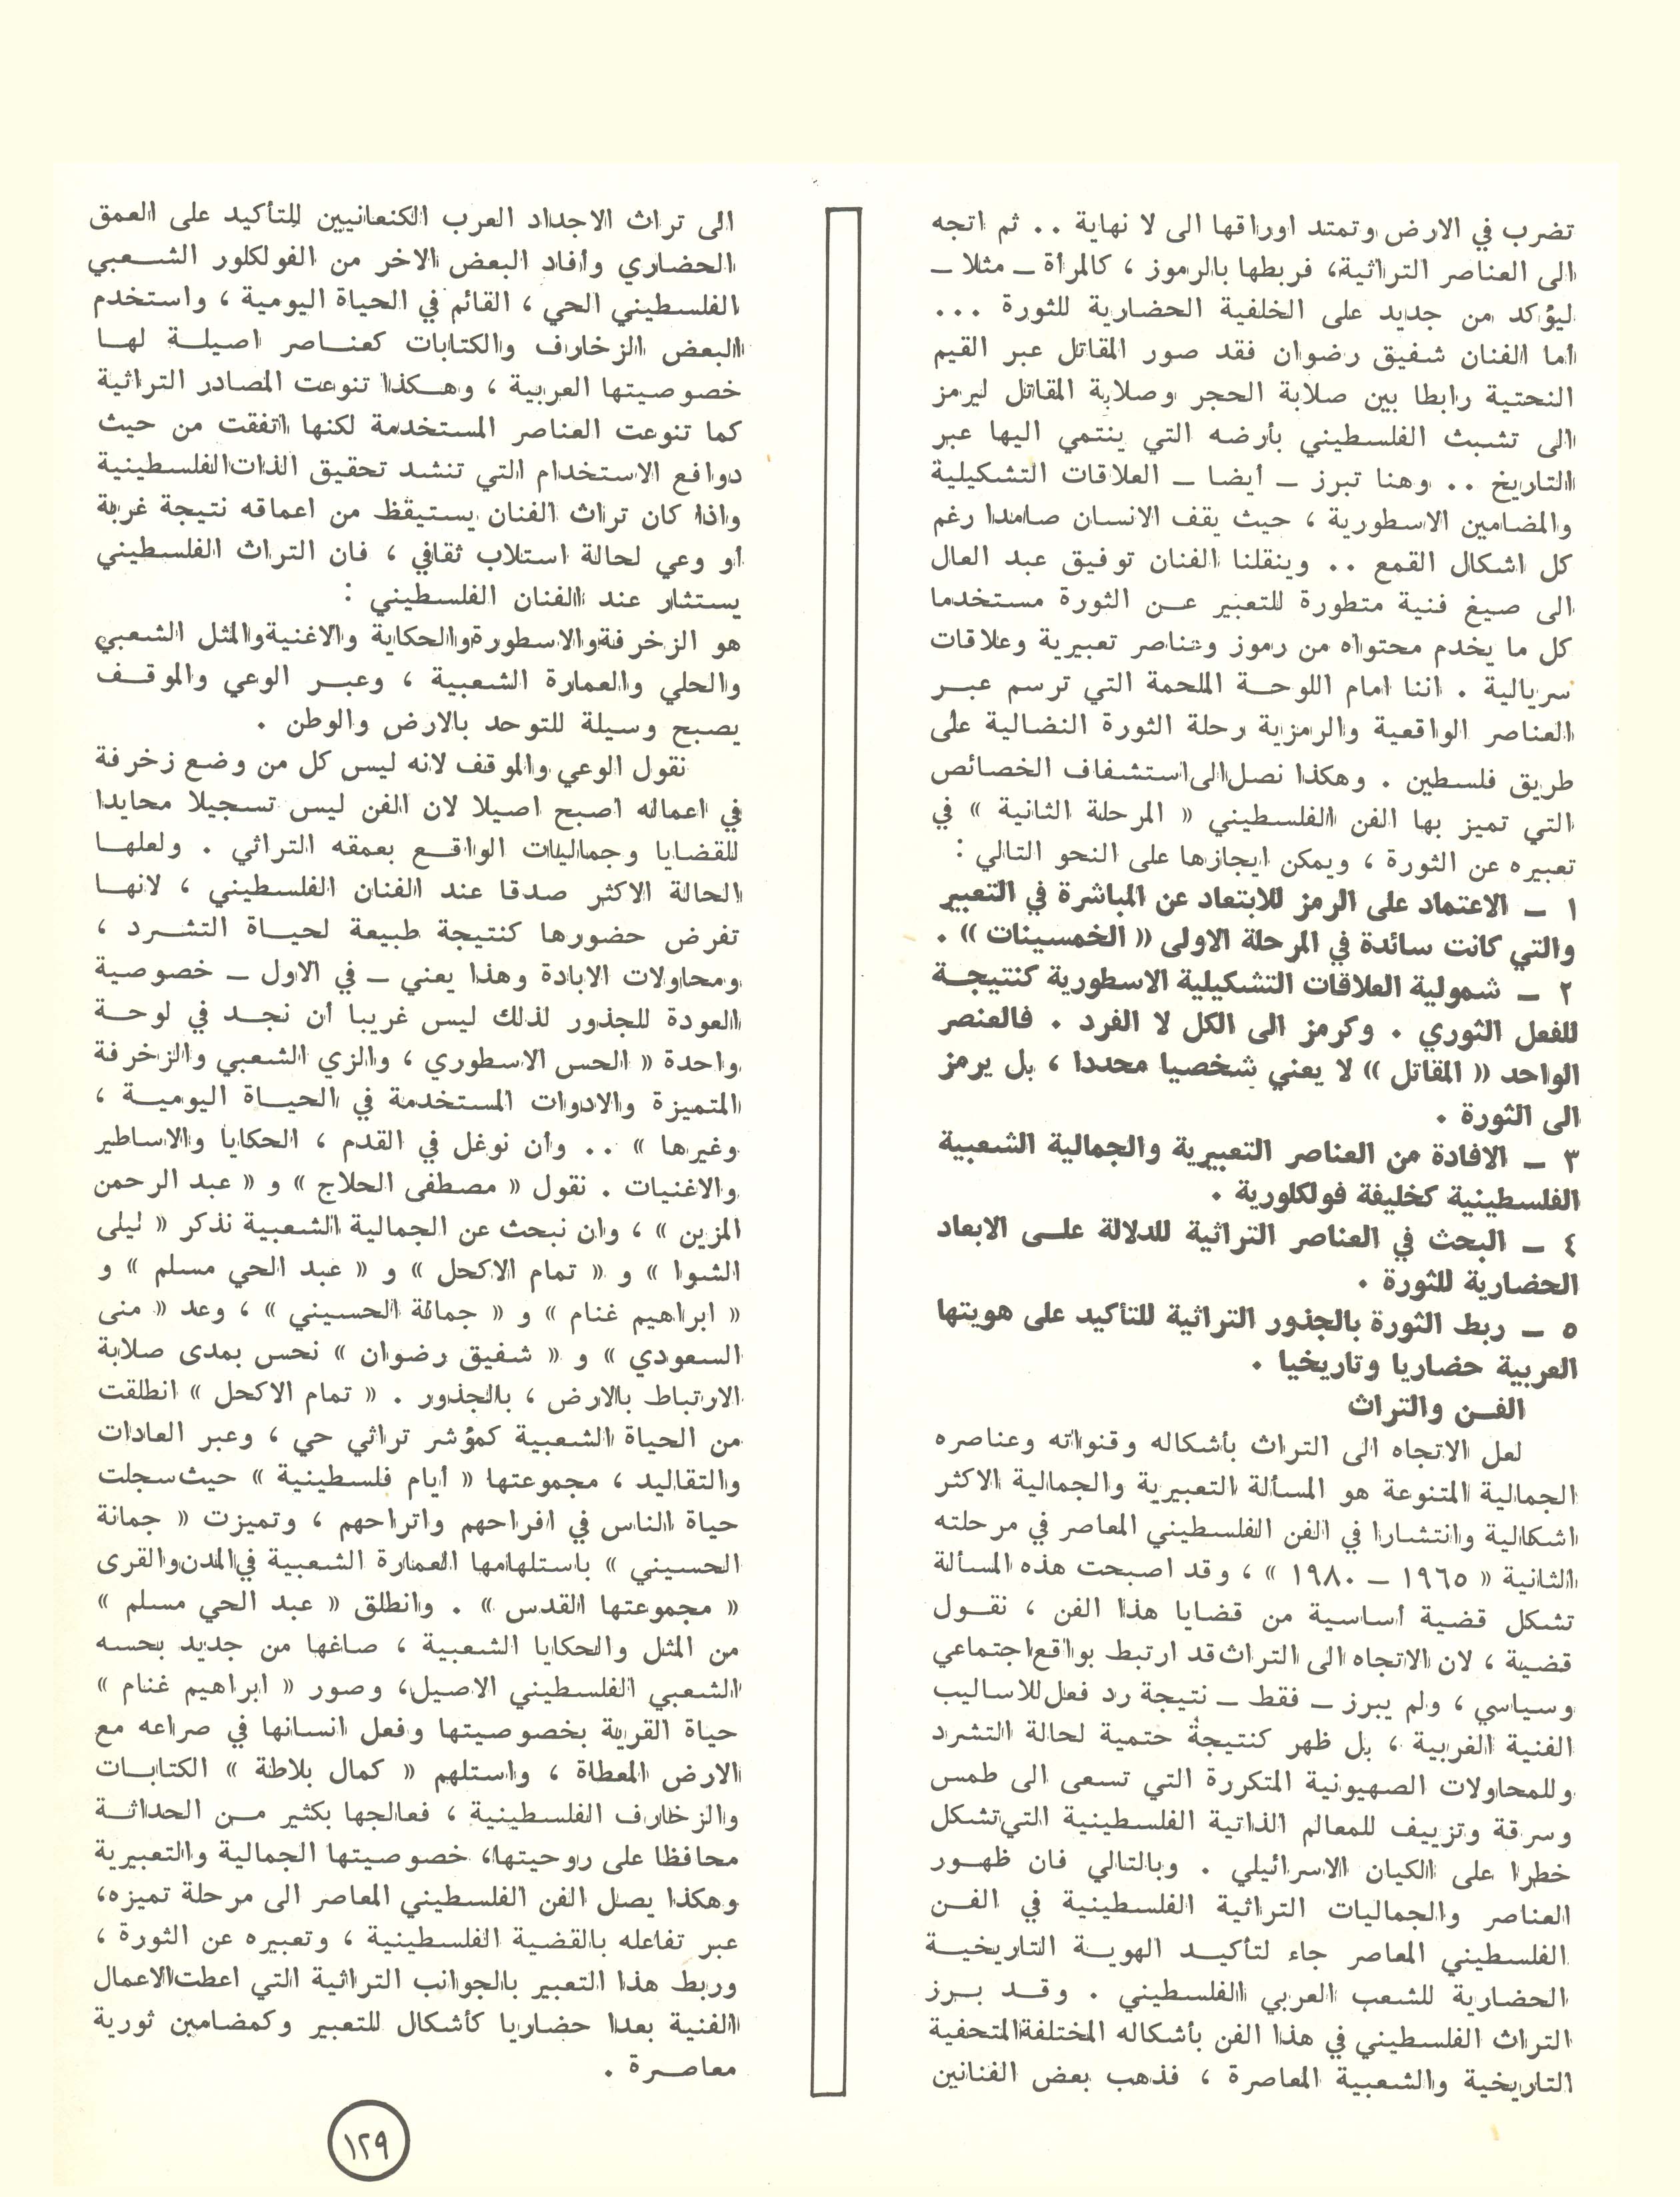 تضرب في الارض وتمتد اوراقها الى لا نهاية .. ثم اتجه
الى العناصر التراثية، فربطها بالرموز ، كالمرأة ــ مثلا ــ
ليؤكد من جديد على الخلفية الحضارية للثورة ...
أما الفنان شفيق رضوان فقد صور المقاتل عبر القيم
النحتية رابطا بين صلابة الحجر وصلابة المقاتل ليرمز
الى تشبث الفلسطيني بأرضه التي ينتمي اليها عبر
التاريخ .. وهنا تبرز ــ أيضا ــ العلاقات التشكيلية
والمضامين الاسطورية ، حيث يقف الانسان صامدا رغم
كل اشكال القمع .. وينقلنا الفنان توفيق عبد العال
الى صيغ فنية متطورة للتعبير عن الثورة مستخدما
كل ما يخدم محتواه من رموز وعناصر تعبيرية وعلاقات
سريالية . اننا امام اللوحة الملحمة التي ترسم عبر
العناصر الواقعية والرمزية رحلة الثورة النضالية على
طريق فلسطين . وهكذا نصل الى استشفاف الخصائص
التي تميز بها الفن الفلسطيني « المرحلة الثانية » في
تعبيره عن الثورة ، ويمكن ايجازها على النحو التالي :
١ ــ الاعتماد على الرمز للابتعاد عن المباشرة في التعبير
والتي كانت سائدة في المرحلة الاولى « الخمسينات » .
٢ ــ شمولية العلاقات التشكيلية الاسطورية كنتيجة
للفعل الثوري . وكرمز الى الكل لا الفرد . فالعنصر
الواحد « المقاتل » لا يعني شخصيا محددا ، بل يرمز
الى الثورة .
٣ ــ الافادة من العناصر التعبيرية والجمالية الشعبية
الفلسطينية كخليفة فولكلورية .
٤ ــ البحث في العناصر التراثية للدلالة على الابعاد
الحضارية للثورة .
٥ ــ ربط الثورة بالجذور التراثية للتأكيد على هويتها
العربية حضاريا وتاريخيا .
الفن والتراث
لعل الاتجاه الى التراث بأشكاله وقنواته وعناصره
الجمالية المتنوعة هو المسألة التعبيرية والجمالية الاكثر
اشكالية وانتشارا في الفن الفلسطيني المعاصر في مرحلته
الثانية « ١٩٦٥ ــ ١٩٨٠ » ، وقد اصبحت هذه المسألة
تشكل قضية أساسية من قضايا هذا الفن ، نقول
قضية ، لان الاتجاه الى التراث قد ارتبط بواقع اجتماعي
وسياسي ، ولم يبرز ــ فقط ــ نتيجة رد فعل للاساليب
الفنية الغربية ، بل ظهر كنتيجة حتمية لحالة التشرد
وللمحاولات الصهيونية المتكررة التي تسعى الى طمس
وسرقة وتزييف للمعالم الذاتية الفلسطينية التي تشكل
خطرا على الكيان الاسرائيلي . وبالتالي فان ظهور
العناصر والجماليات التراثية الفلسطينية في الفن
الفلسطيني المعاصر جاء لتأكيد الهوية التاريخية
الحضارية للشعب العربي الفلسطيني . وقد برز
التراث الفلسطيني في هذا الفن بأشكاله المختلفة المتحفية
التاريخية والشعبية المعاصرة ، فذهب بعض الفنانين
الى تراث الاجداد العرب الكنعانيين للتأكيد على العمق
الحضاري وأفاد البعض الاخر من الفولكلور الشعبي
الفلسطيني الحي ، القائم في الحياة اليومية ، واستخدم
البعض الزخارف والكتابات كعناصر اصيلة لها
خصوصيتها العربية ، وهكذا تنوعت المصادر التراثية
كما تنوعت العناصر المستخدمة لكنها اتفقت من حيث
دوافع الاستخدام التي تنشد تحقيق الذات الفلسطينية
واذا كان تراث الفنان يستيقظ من اعماقه نتيجة غربة
أو وعي لحالة استلاب ثقافي ، فان التراث الفلسطيني
يستثار عند الفنان الفلسطيني :
هو الزخرفة والاسطورة والحكاية والاغنية والمثل الشعبي
والحلي والعمارة الشعبية ، وعبر الوعي والموقف
يصبح وسيلة للتوحد بالارض والوطن .
نقول الوعي والموقف لانه ليس كل من وضع زخرفة
في اعماله اصبح اصيلا لان الفن ليس تسجيلا محايدا
للقضايا وجماليات الواقع بعمقه التراثي . ولعلها
الحالة الاكثر صدقا عند الفنان الفلسطيني ، لانها
تفرض حضورها كنتيجة طبيعة لحياة التشرد ،
ومحاولات الابادة وهذا يعني ــ في الاول ــ خصوصية
العودة للجذور لذلك ليس غريبا أن نجد في لوحة
واحدة « الحس الاسطوري ، والزي الشعبي والزخرفة
المتميزة والادوات المستخدمة في الحياة اليومية ،
وغيرها » .. وأن نوغل في القدم ، الحكايا والاساطير
والاغنيات . نقول « مصطفى الحلاج » و « عبد الرحمن
المزين » ، وان نبحث عن الجمالية الشعبية نذكر « ليلى
الشوا » و « تمام الاكحل » و « عبد الحي مسلم » و
« ابراهيم غنام » و « جمانة الحسيني » ، وعد « منى
السعودي » و « شفيق رضوان » نحس بمدى صلابة
الارتباط بالارض ، بالجذور . « تمام الاكحل » انطلقت
من الحياة الشعبية كمؤشر تراثي حي ، وعبر العادات
والتقاليد ، مجموعتها « أيام فلسطينية » حيث سجلت
حياة الناس في افراحهم واتراحهم ، وتميزت « جمانة
الحسيني » باستلهامها العمارة الشعبية في المدن والقرى
« مجموعتها القدس » . وانطلق « عبد الحي مسلم »
من المثل والحكايا الشعبية ، صاغها من جديد بحسه
الشعبي الفلسطيني الاصيل، وصور « ابراهيم غنام »
حياة القرية بخصوصيتها وفعل انسانها في صراعه مع
الارض المعطاة ، واستلهم « كمال بلاطة » الكتابات
والزخارف الفلسطينية ، فعالجها بكثير من الحداثة
محافظا على روحيتها، خصوصيتها الجمالية والتعبيرية
وهكذا يصل الفن الفلسطيني المعاصر الى مرحلة تميزه،
عبر تفاعله بالقضية الفلسطينية ، وتعبيره عن الثورة ،
وربط هذا التعبير بالجوانب التراثية التي اعطت الاعمال
الفنية بعدا حضاريا كأشكال للتعبير وكمضامين ثورية
معاصرة .
١٢٩